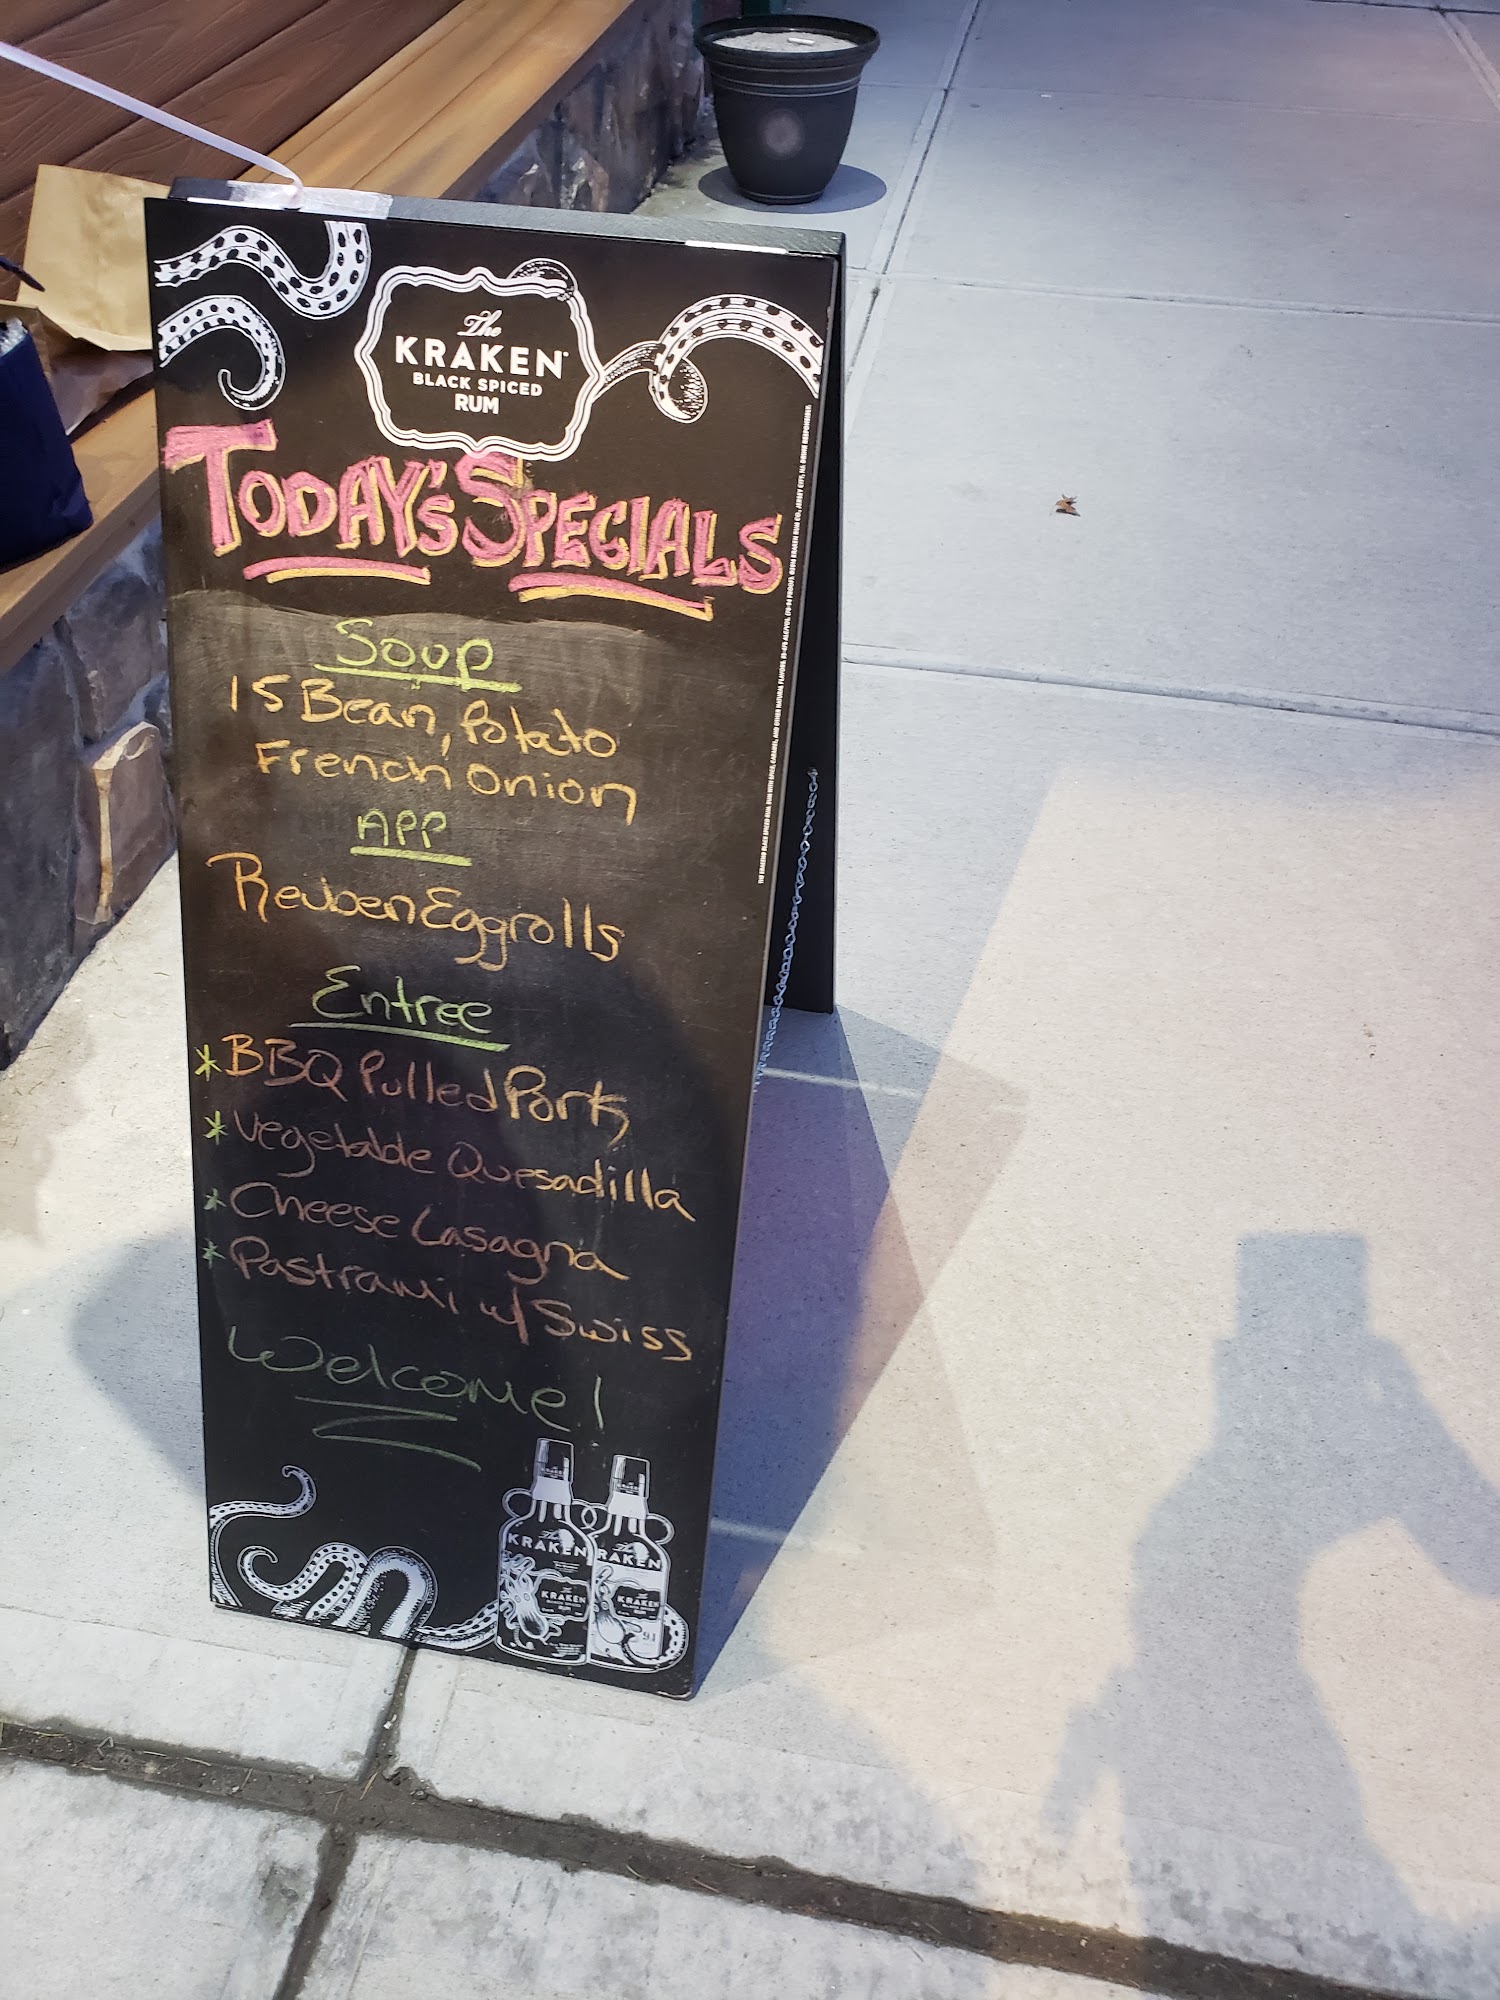 The
KRAKEN
BLACK SPICED
RUM
TODAY'S SPECIALS
Soup
15 Bean, Potato
French Onion
APP
Reuben Eggrolls
Entree
*BBQ Pulled Pork
*Vegetable Quesadilla
*Cheese Lasagna
*Pastrami w/ Swiss
Welcome!
The
KRAKEN
KRAKEN
BLACK SPICED
RUM
RAKEN
The
KRAKEN
BLACK SPICED
RUM